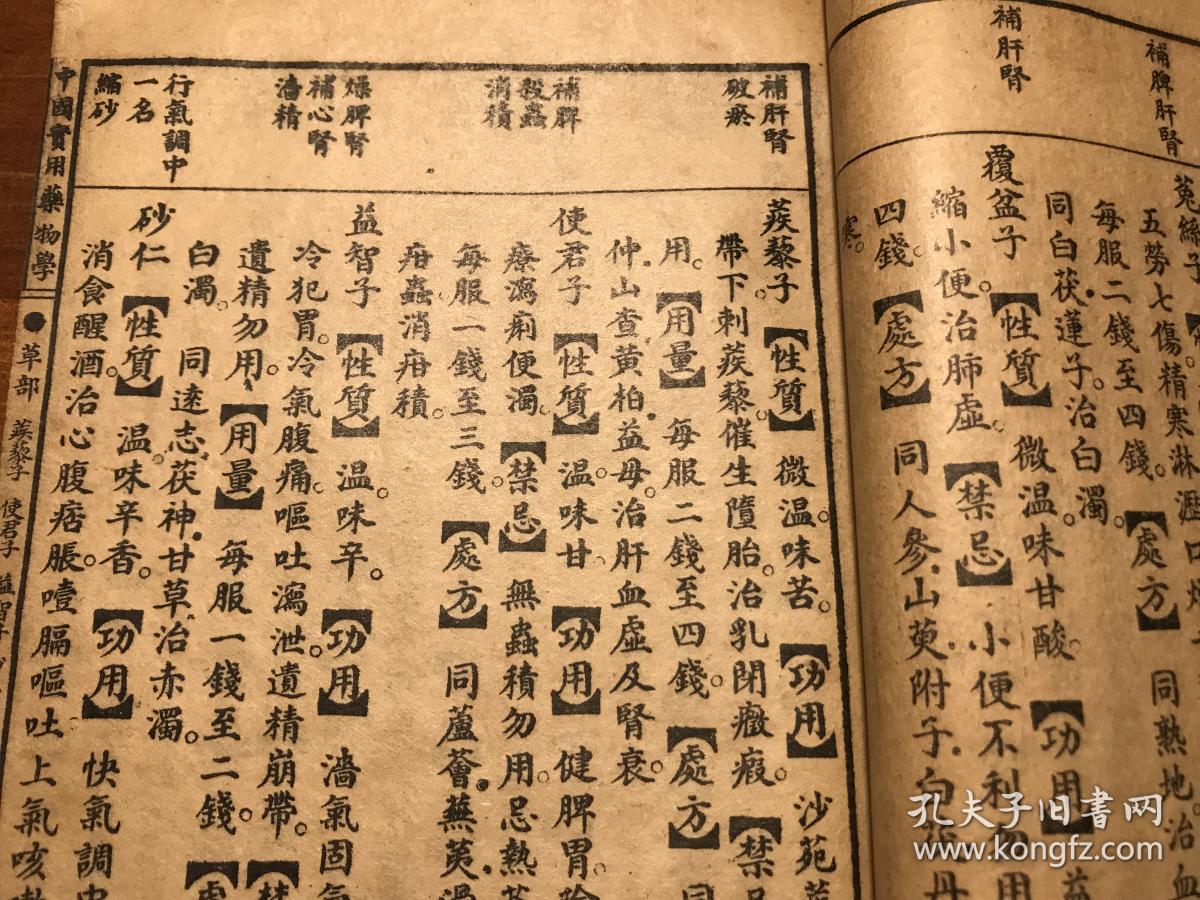 補脾肝腎
補肝腎
五勞七傷精寒淋瀝口
每服二錢至四錢。【處方】同熟地治血
同白茯蓮子。治白濁。
覆盆子【性質】微溫。味甘酸。【功用】益
縮小便。治肺虛。【禁忌】小便不利勿用
四錢。【處方】同人參。山萸。附子。白
寒。
補肝腎
破瘀
補脾
殺蟲
消積
燥脾腎
補心腎
濇精
行氣調中
一名
縮砂
蒺藜子【性質】微溫。味苦。【功用】沙苑
帶下。刺蒺藜。催生墮胎。治乳閉癥瘕。【禁
用。【用量】每服二錢至四錢。【處方】同
仲。山查。黃柏。益母。治肝血虛及腎衰。
使君子【性質】溫。味甘。【功用】健脾胃。
療瀉痢便濁。【禁忌】無蟲積勿用。忌熱
每服一錢至三錢。【處方】同蘆薈。蕪荑。
疳蟲。消疳積。
益智子【性質】溫。味辛。【功用】濇氣固
冷犯胃。冷氣腹痛。嘔吐瀉泄。遺精崩帶。
遺精勿用。【用量】每服一錢至二錢。
白濁。同遠志。茯神。甘草。治赤濁。
砂仁【性質】溫。味辛香。【功用】快氣調中
消食醒酒。治心腹痞脹。噎膈嘔吐。上氣咳
中國實用藥物學
●草部
蒺藜子 使君子 益智子
孔夫子旧書网
www.kongfz.com